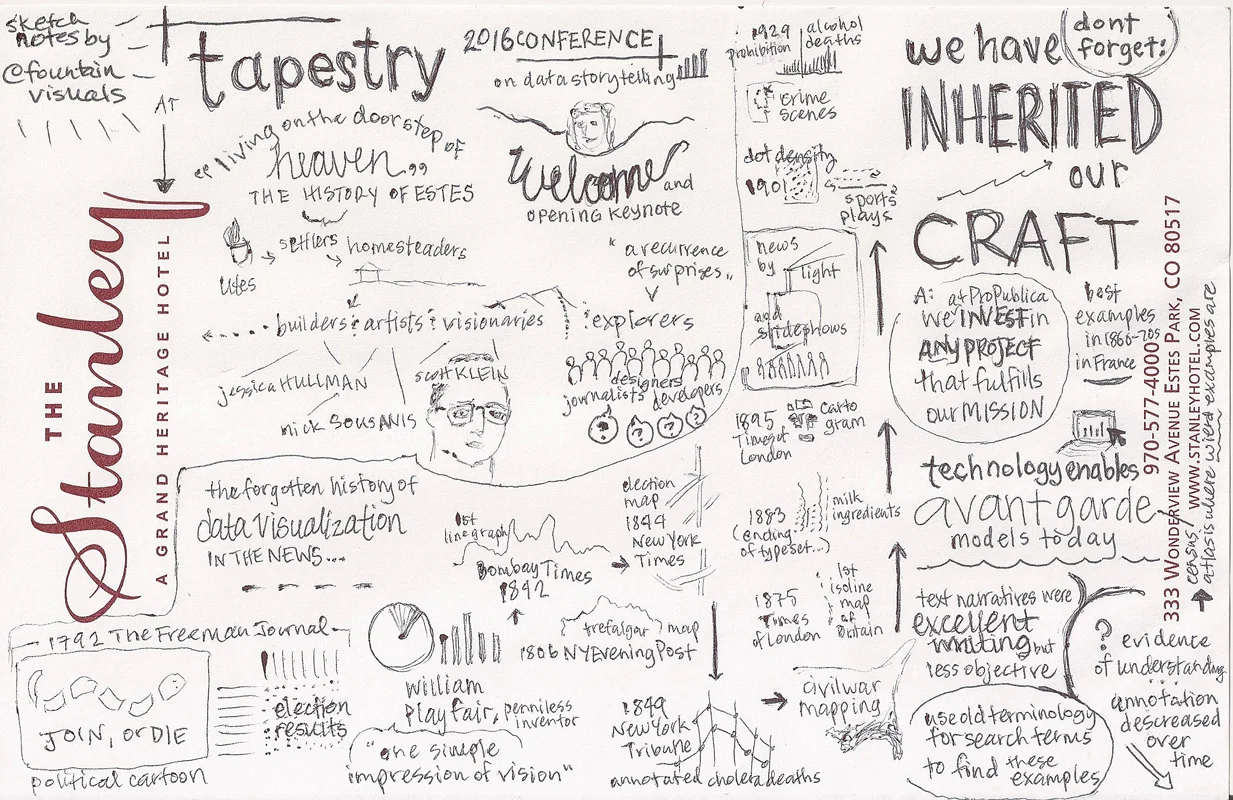 sketch
notes by
@fountain
visuals
AT
THE
Stanley
A GRAND HERITAGE HOTEL
tapestry
2016 CONFERENCE
on data storytelling
"living on the doorstep of
heaven"
THE HISTORY OF ESTES
Utes
settlers
homesteaders
Welcome and
opening keynote
"a recurrence
of surprises"
builders artists visionaries
explorers
jessica HULLMAN
nick SOUSANIS
scott KLEIN
designers
journalists developers
? ? ? ?
the forgotten history of
data visualization
IN THE NEWS...
1792 The Freeman Journal
JOIN, or DIE
political cartoon
election
results
William
Playfair, penniless
inventor
"one simple
impression of vision"
1st
line graph
Bombay Times
1842
trefalgar map
1806 NY Evening Post
election
map
1844
New York
Times
1849
New York
Tribune
annotated cholera deaths
civil war
mapping
1875
Times
of London
1st
isoline
map
of
Britain
1883
(ending
of typeset...)
milk
ingredients
1895
Times of
London
Carto
gram
news
by
light
and
slideshows
dot density
1901
sports
plays
crime
scenes
1929
prohibition
alcohol
deaths
we have
dont
forget:
INHERITED
our
CRAFT
A: at ProPublica
we INVEST in
ANY PROJECT
that fulfills
our MISSION
best
examples
in 1860-20s
in France
technology enables
avant garde
models today
text narratives were
excellent
writing but
less objective
use old terminology
for search terms
to find these
examples
?
evidence
of understanding
annotation
descreased
over
time
333 WONDERVIEW AVENUE ESTES PARK, CO 80517
970-577-4000
WWW.STANLEYHOTEL.COM
census/
atlas is where wierd examples are